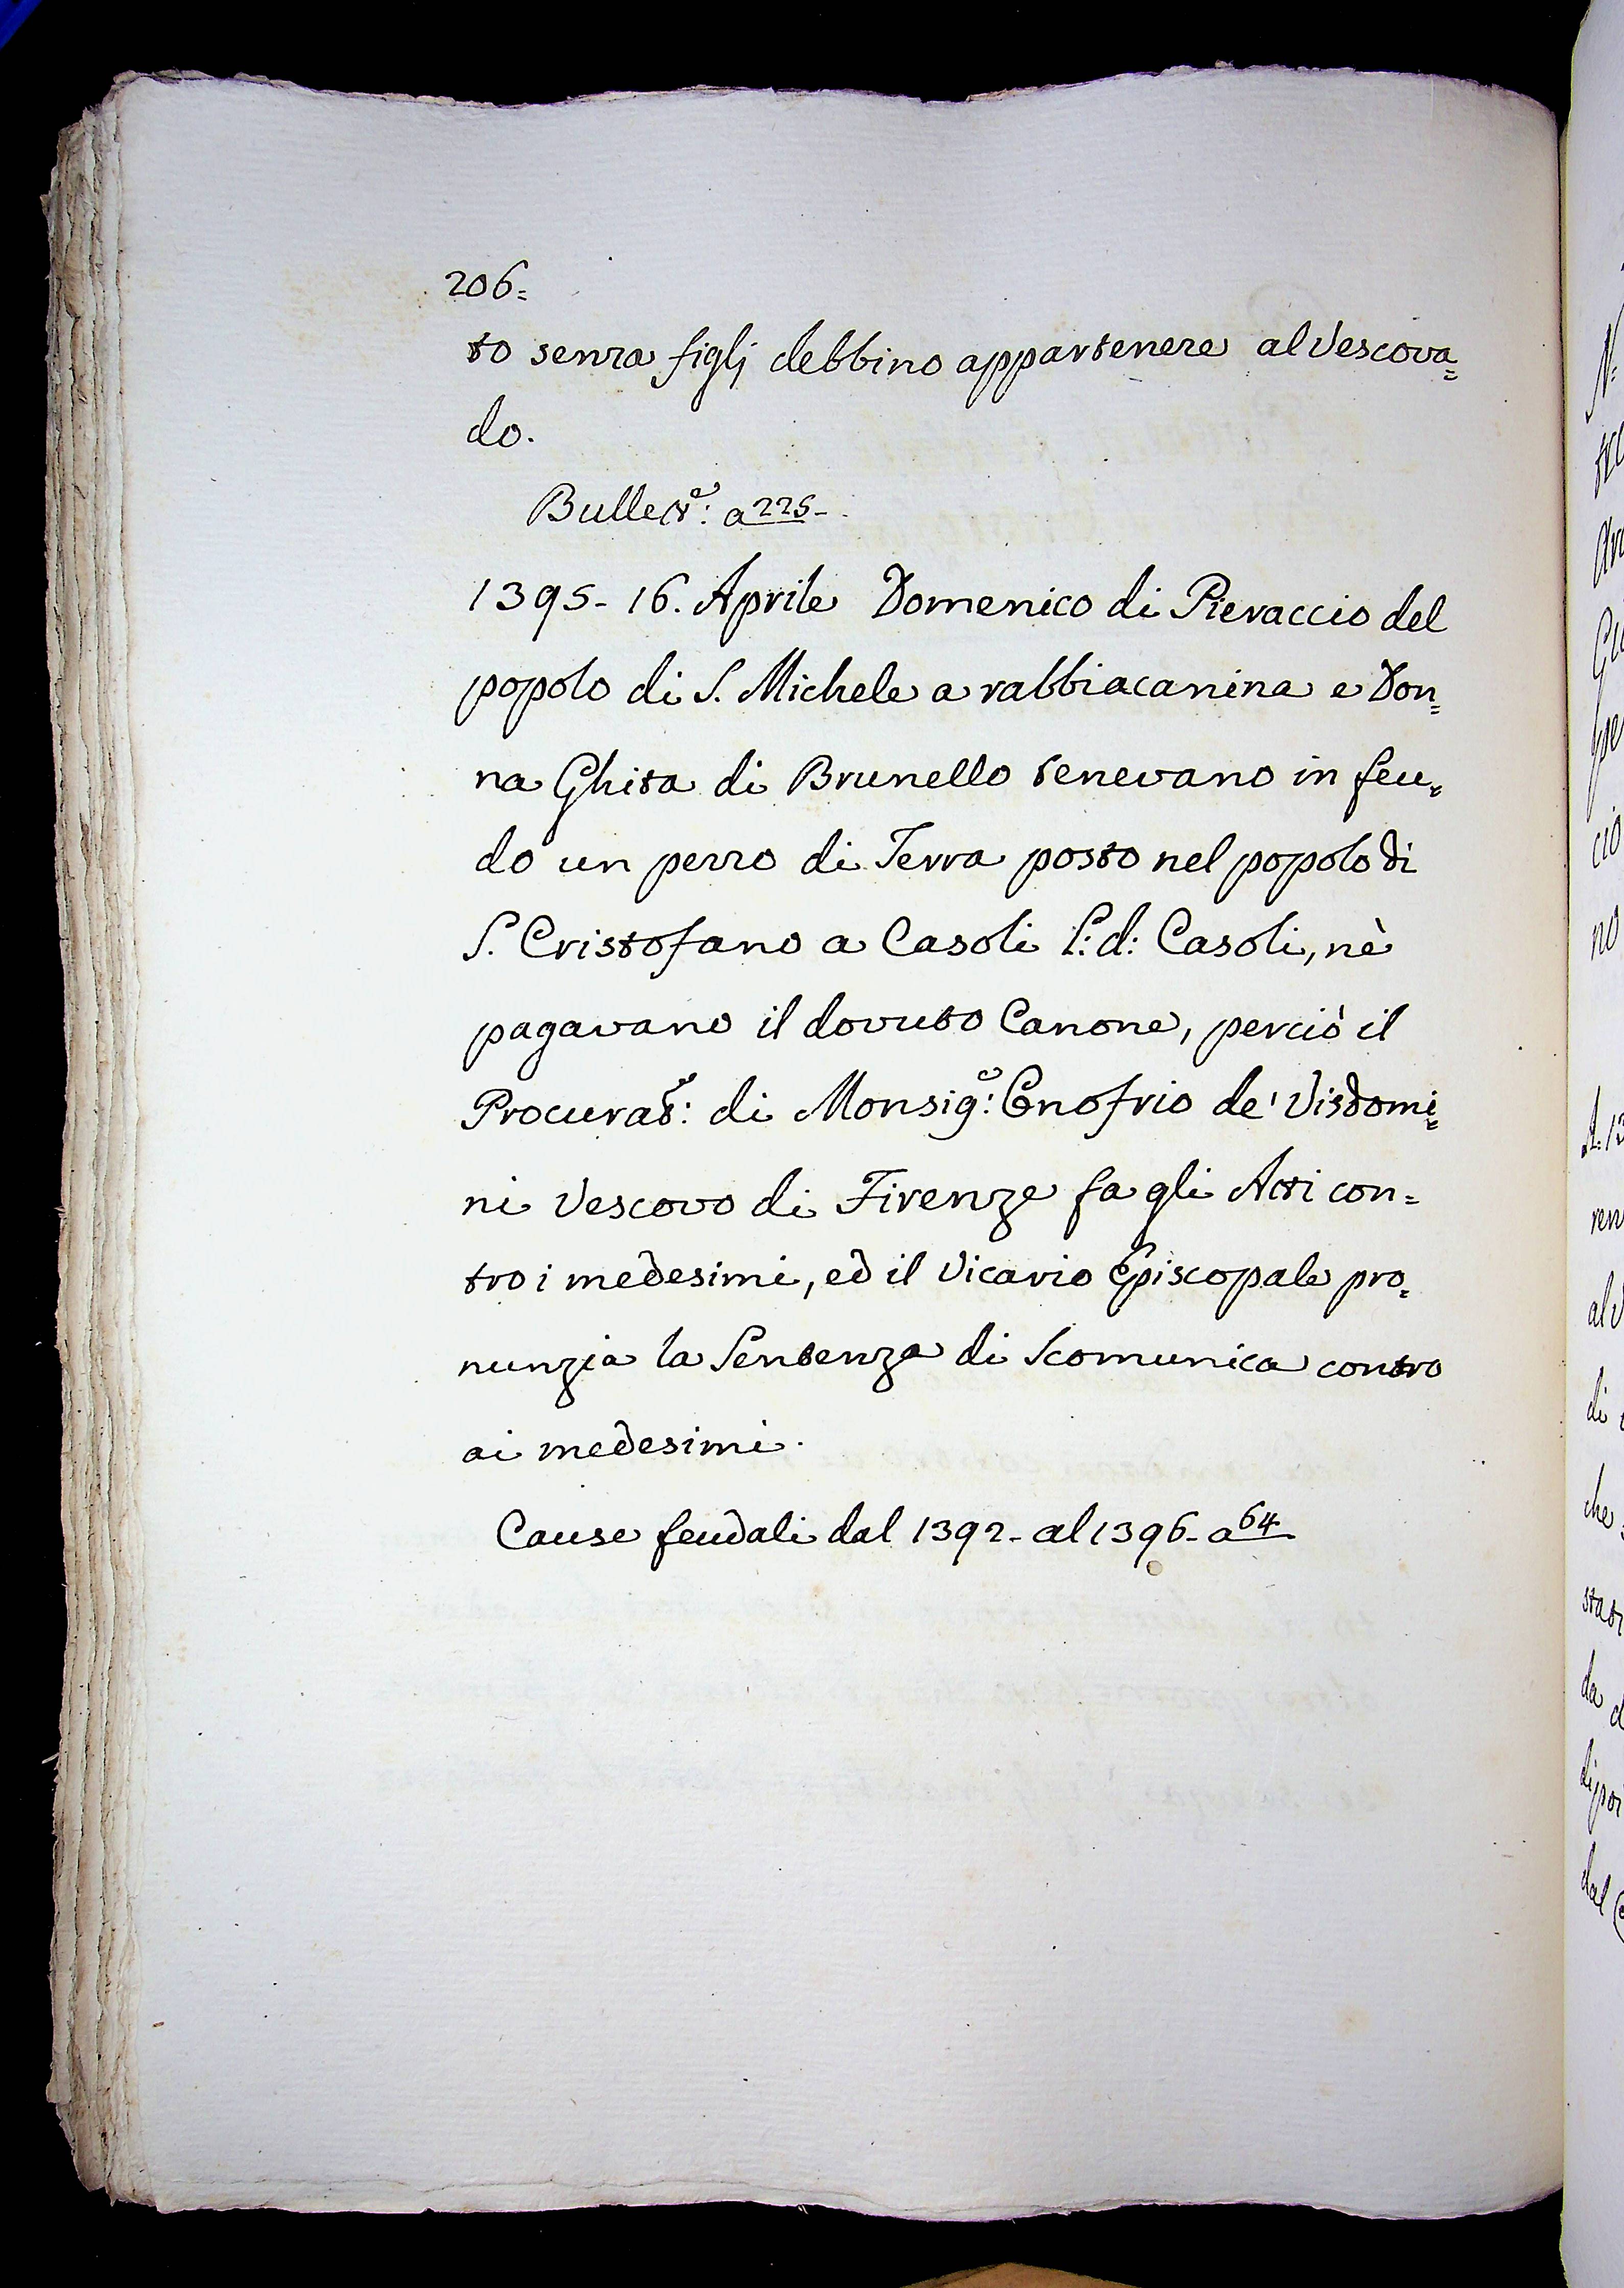 206=
to senza figlj debbino appartenere al Vescova=
do.
Bullett.º: a 225-
1395- 16. Aprile Domenico di Pieraccio del
popolo di S. Michele a rabbiacanina e Don=
na Ghita di Brunello tenevano in feu=
do un pezzo di Terra posto nel popolo di
S. Cristofano a Casoli l: d: Casoli, nè
pagavano il dovuto Canone, perciò il
Procurat.e: di Monsig.e: Onofrio de' Visdomi=
ni Vescovo di Firenze fa gli Atti con=
tro i medesimi, ed il Vicario Episcopale pro=
nunzia la Sentenza di Scomunica contro
ai medesimi.
Cause feudali dal 1392- al 1396- a 64